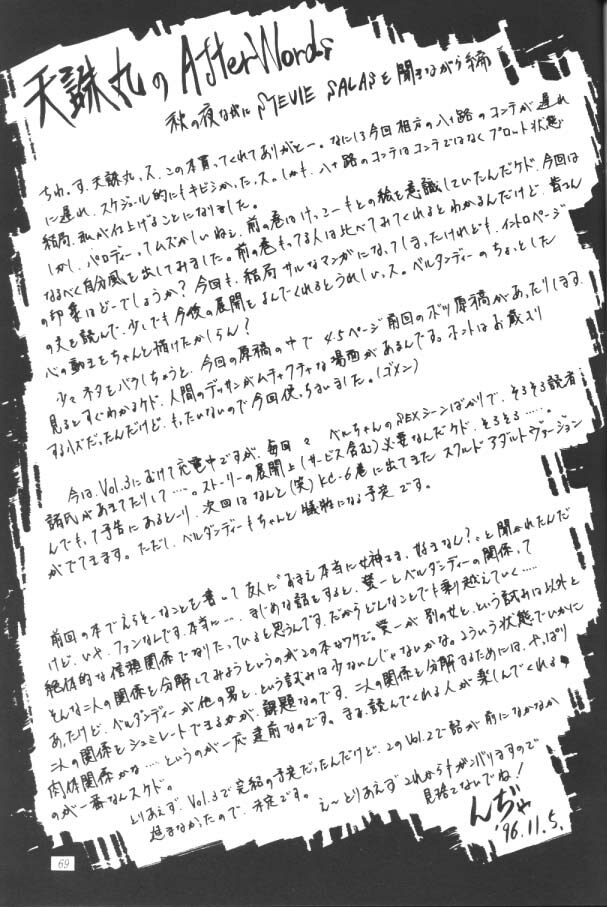 天誅丸のAfterWords
秋の夜ながに STEVIE SALASを聞きながら編
ちわっす、天誅丸っス、この本買ってくれてありがとー。なにしろ今回相方の八十路のコンテが遅れ
に遅れ、スケジュール的にもキビシかったっス。しかも、八十路のコンテはコンテではなくプロット状態
結局、私が仕上げることになりました。
しかし、パロディーってムズかしいねぇ、前の巻はけっこーもとの絵を意識していたんだケド、今回は
なるべく自分風を出してみました。前の巻もってる人は比べてみてくれるとわかるんだけど、皆さん
の印象はどーでしょうか？今回も、結局サルなマンガになってしまったけれども、イントロページ
の文を読んで、少しでも今後の展開をよんでくれるとうれしいっス。ベルダンディーのちょっとした
心の動きをちゃんと描けたかしらん？
少々ネタをバラしちゃうと、今回の原稿の中で 4.5ページ前回のボツ原稿があったりします。
見るとすぐわかるケド、人間のデッサンがムチャクチャな場面があるんです。ホントはお蔵入り
するハズだったんだけど、もったいないので今回使っちまいました。（ゴメン）
今は、Vol.3にむけて充電中ですが、毎回々 ベルちゃんのSEXシーンばかりで、そろそろ読者
諸氏があきてたりして…。ストーリーの展開上（サービス含む）必要なんだケド、そろそろ……。
んでもって予告にあるとーり、次回はなんと（笑）KC-6巻に出てきた スクルドアダルトヴァージョン
がでてきます。ただし、ベルダンディーもちゃんと犠牲になる予定です。
前回の本でえらそーなことを書いて友人に"おまえ本当に女神さま、好きなん？"と聞かれたんだ
けど、いや、ファンなんです、本当に…、まじめな話をすると、螢一とベルダンディーの関係って
絶体的な信頼関係でなりたっていると思うんです。だからどんなことでも乗り越えていく……
そんな二人の関係を分解してみようというのがこの本なワケで。螢一が別の女と、という試みは以外と
あったけど、ベルダンディーが他の男と、という試みは少ないんじゃないかな。こういう状態でいかに
二人の関係をシュミレートできるかが、課題なのです。二人の関係を分解するためには、やっぱり
肉体関係かな……というのが一応建前なのです。まぁ、読んでくれる人が楽しんでくれる
のが一番なんスケド。
とりあえず、Vol.3で完結の予定だったんだけど、このVol.2で話が前になかなか
進まなかったので、未定です。
えーとりあえずこれからもガンバリますので
見捨てないでね！
んぢゃ
'96.11.5.
69